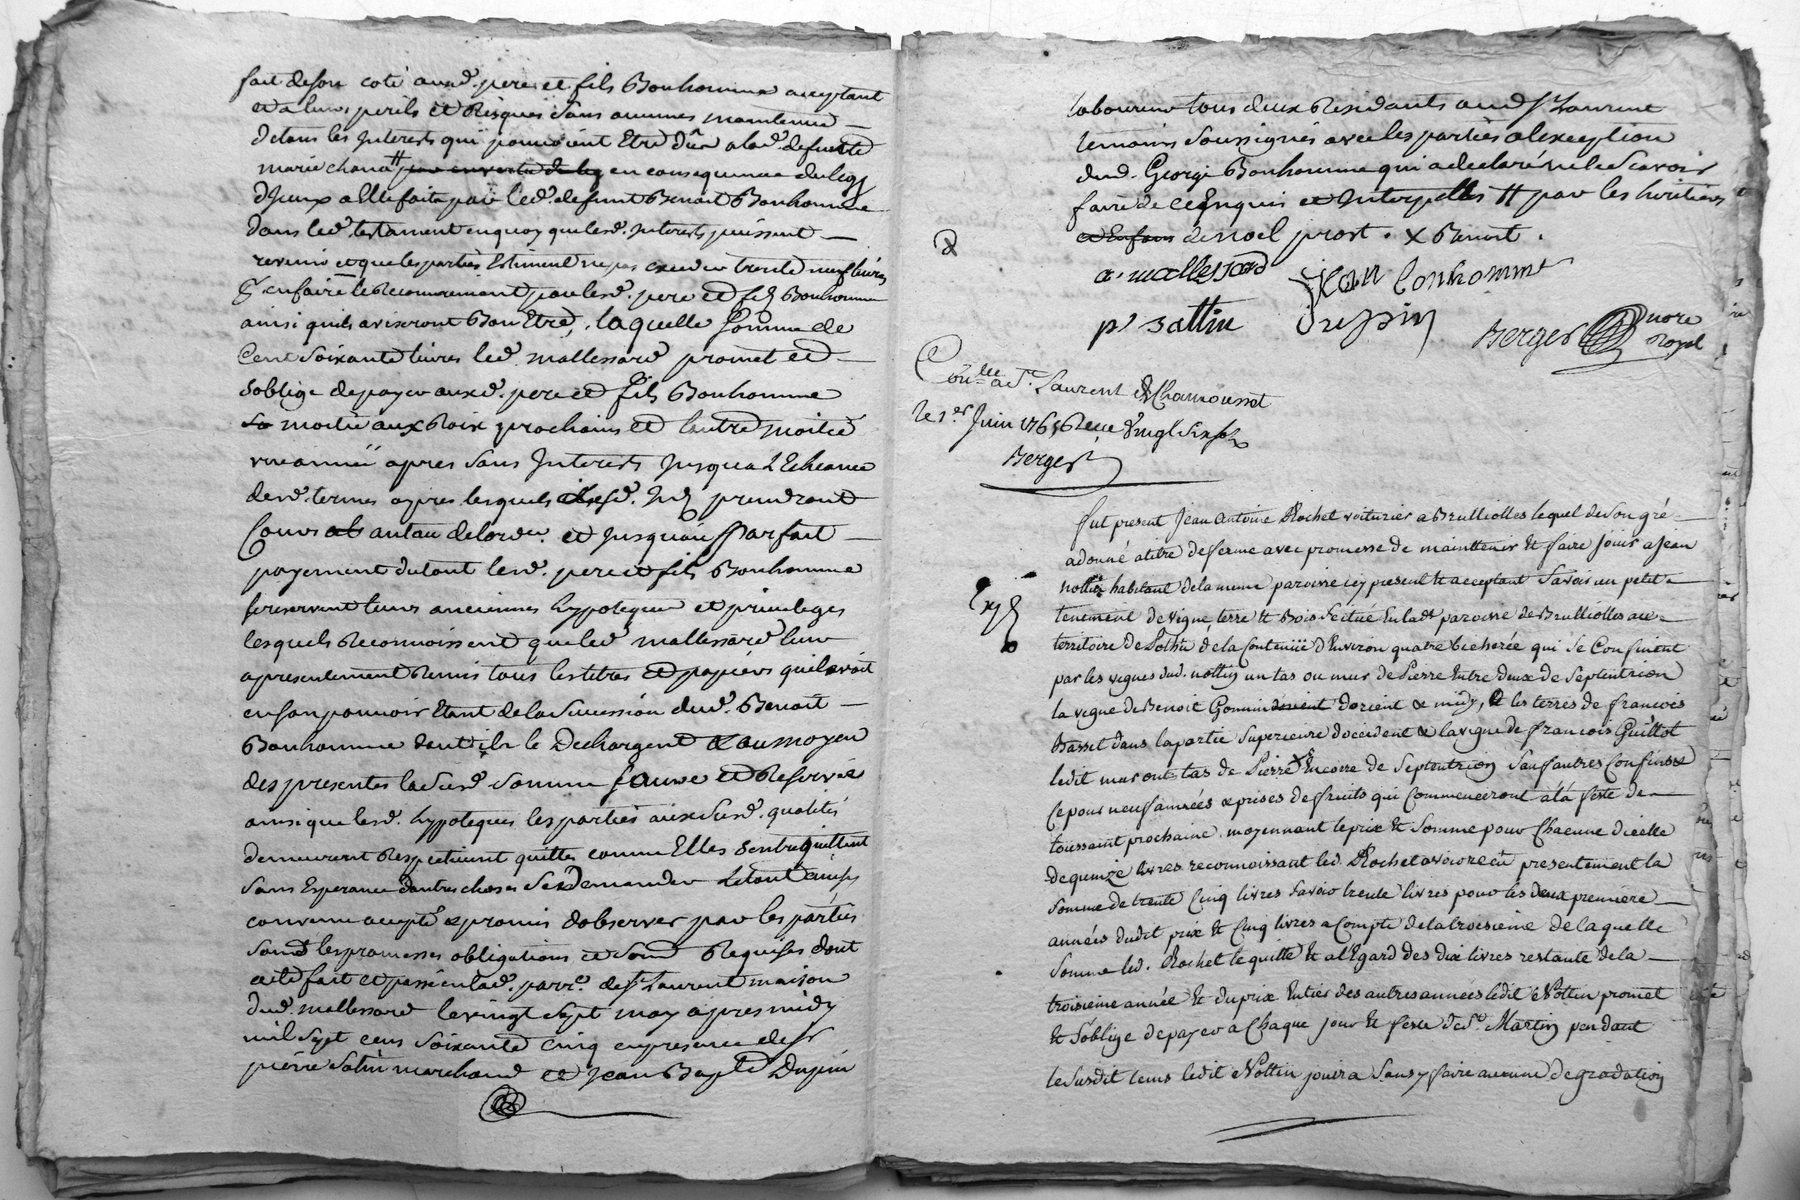 fait de son coté auxd. pere et fils Bonhomme acceptant
et a leurs perils et Risques sans aucunes maintenue
de tous les Interests qui pouvoient Etre dûs a lad. defunte
marie # en consequence du legs
d'Iceux a Elle fait par led. defunt Benoit Bonhomme
dans led. testament enquoy que lesd. Interests puissent
revenir et que les parties Estiment ne pas exceder trente neuf livres
p. en faire le Recouvrement par lesd. pere et fils Bonhomme
ainsi quils aviseront Bon Etre, laquelle somme de
Cent soixante livres led. mallessard promet et
soblige de payer auxd. pere et fils Bonhomme
moitié aux Rois prochains et lautre moitié
une année apres sans Interests Jusqua L'Echeance
desd. termes apres lesquels lesd. Ints prendront
Cours au taux de lordce. et Jusquau parfait
payement du tout lesd. pere et fils Bonhomme
se reservent leurs anciennes hypoteques et privileges
lesquels Reconnoissent que led. mallessard leur
a presentement Remis tous les titres et papiers quil avoit
en son pouvoir Etant de la Succession dud. Benoit
Bonhomme dont ils le Dechargent & au moyen
des presentes la susd. somme sauve et Reservée
ainsi que lesd. hypoteques les parties aux susd. qualités
demeurent Respectivement quittes comme Elles sentrequittent
sans Esperance dautres choses se demander le tout ainsy
convenu accepté & promis dobserver par les parties
sous les promesses obligations et sous Requises dont
acte fait et passé en lad. parr. de St Laurent maison
dud. mallessard le vingt sept may apres midy
mil sept cens soixante cinq en presence de Sr
pierre Satin marchand et Jean Bapte Dupin
laboureur tous deux Residants aud St Laurent
temoins soussignés avec les parties a lexception
dud. George Bonhomme qui a declaré ne le scavoir
faire de ce Enquis et Interpellés # par les heritiers
de noel prost. x Benoit.
a. mallessard Jean bonhomme
pr sattin Dupin
Berger nore Royal
Conlle a St. Laurent de Chamousset
le 1er Juin 1765 Reçu vingt six s
Berger
fut present Jean Antoine Rochet voiturier a Brulliolles lequel de son gré
a donné a titre de ferme avec promesse de mainttenir & faire Jouir a Jean
nottin habitant de la meme paroisse icy present & acceptant savoir un petit
Exp
tenement de vigne terre & Bois scitué En lade paroisse de Brulliolles au
territoire de de la Contenüe d'Environ quatre bicherée qui se Confinent
par les vignes dud. nottin un tas ou mur de Pierre Entre deux de Septentrion
la vigne de Benoit dorient & midy, & les terres de francois
Basset dans la partie Superieure d'occident & la vigne de francois Guillot
ledit mur ou tas de Pierre Encorre de Septentrion Sauf autres Confins
Ce pour neuf années & prises de fruits qui Commenceront a la feste de
toussaint prochaine, moyennant le prix & Somme pour Chacune dicelle
de quinze livres reconnoissant led. Rochet avoir reçu presentement la
Somme de trente Cinq livres savoir trente livres pour les deux premiére
années dudit prix & Cinq livres a Compte de la troisieme de laquelle
Somme led. Rochet le quitte & a l'Egard des dix livres restante de la
troisieme année & du prix Entier des autres années ledit Nottin promet
& s'oblige de payer a Chaque jour & feste de St. Martin pendant
le Susdit tems ledit Nottin jouira Sans y faire aucune degradation